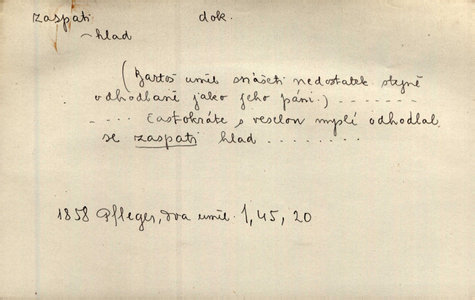 zaspati dok.
~ hlad
(Bartoš uměl snášeti nedostatek stejně
odhodlaně jako jeho páni.) - - - - - - -
- - - - častokráte s veselou myslí odhodlal
se zaspati hlad . . . . . . . .
1858 Pfleger, Dva uměl. 1, 45, 20